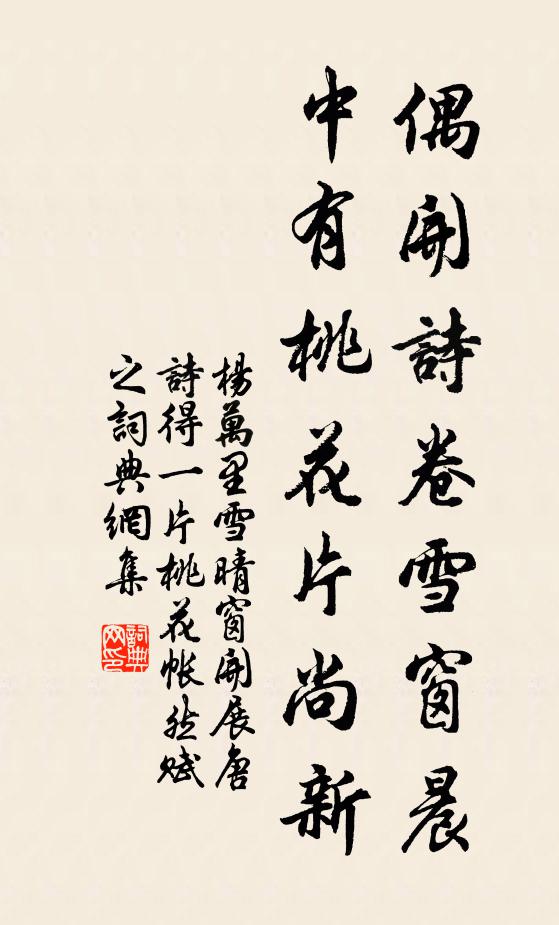 偶開詩卷雪窗晨
中有桃花片尚新
楊萬里雪晴窗開展唐
詩得一片桃花帳然賦
之詞典網集
詞典
网印